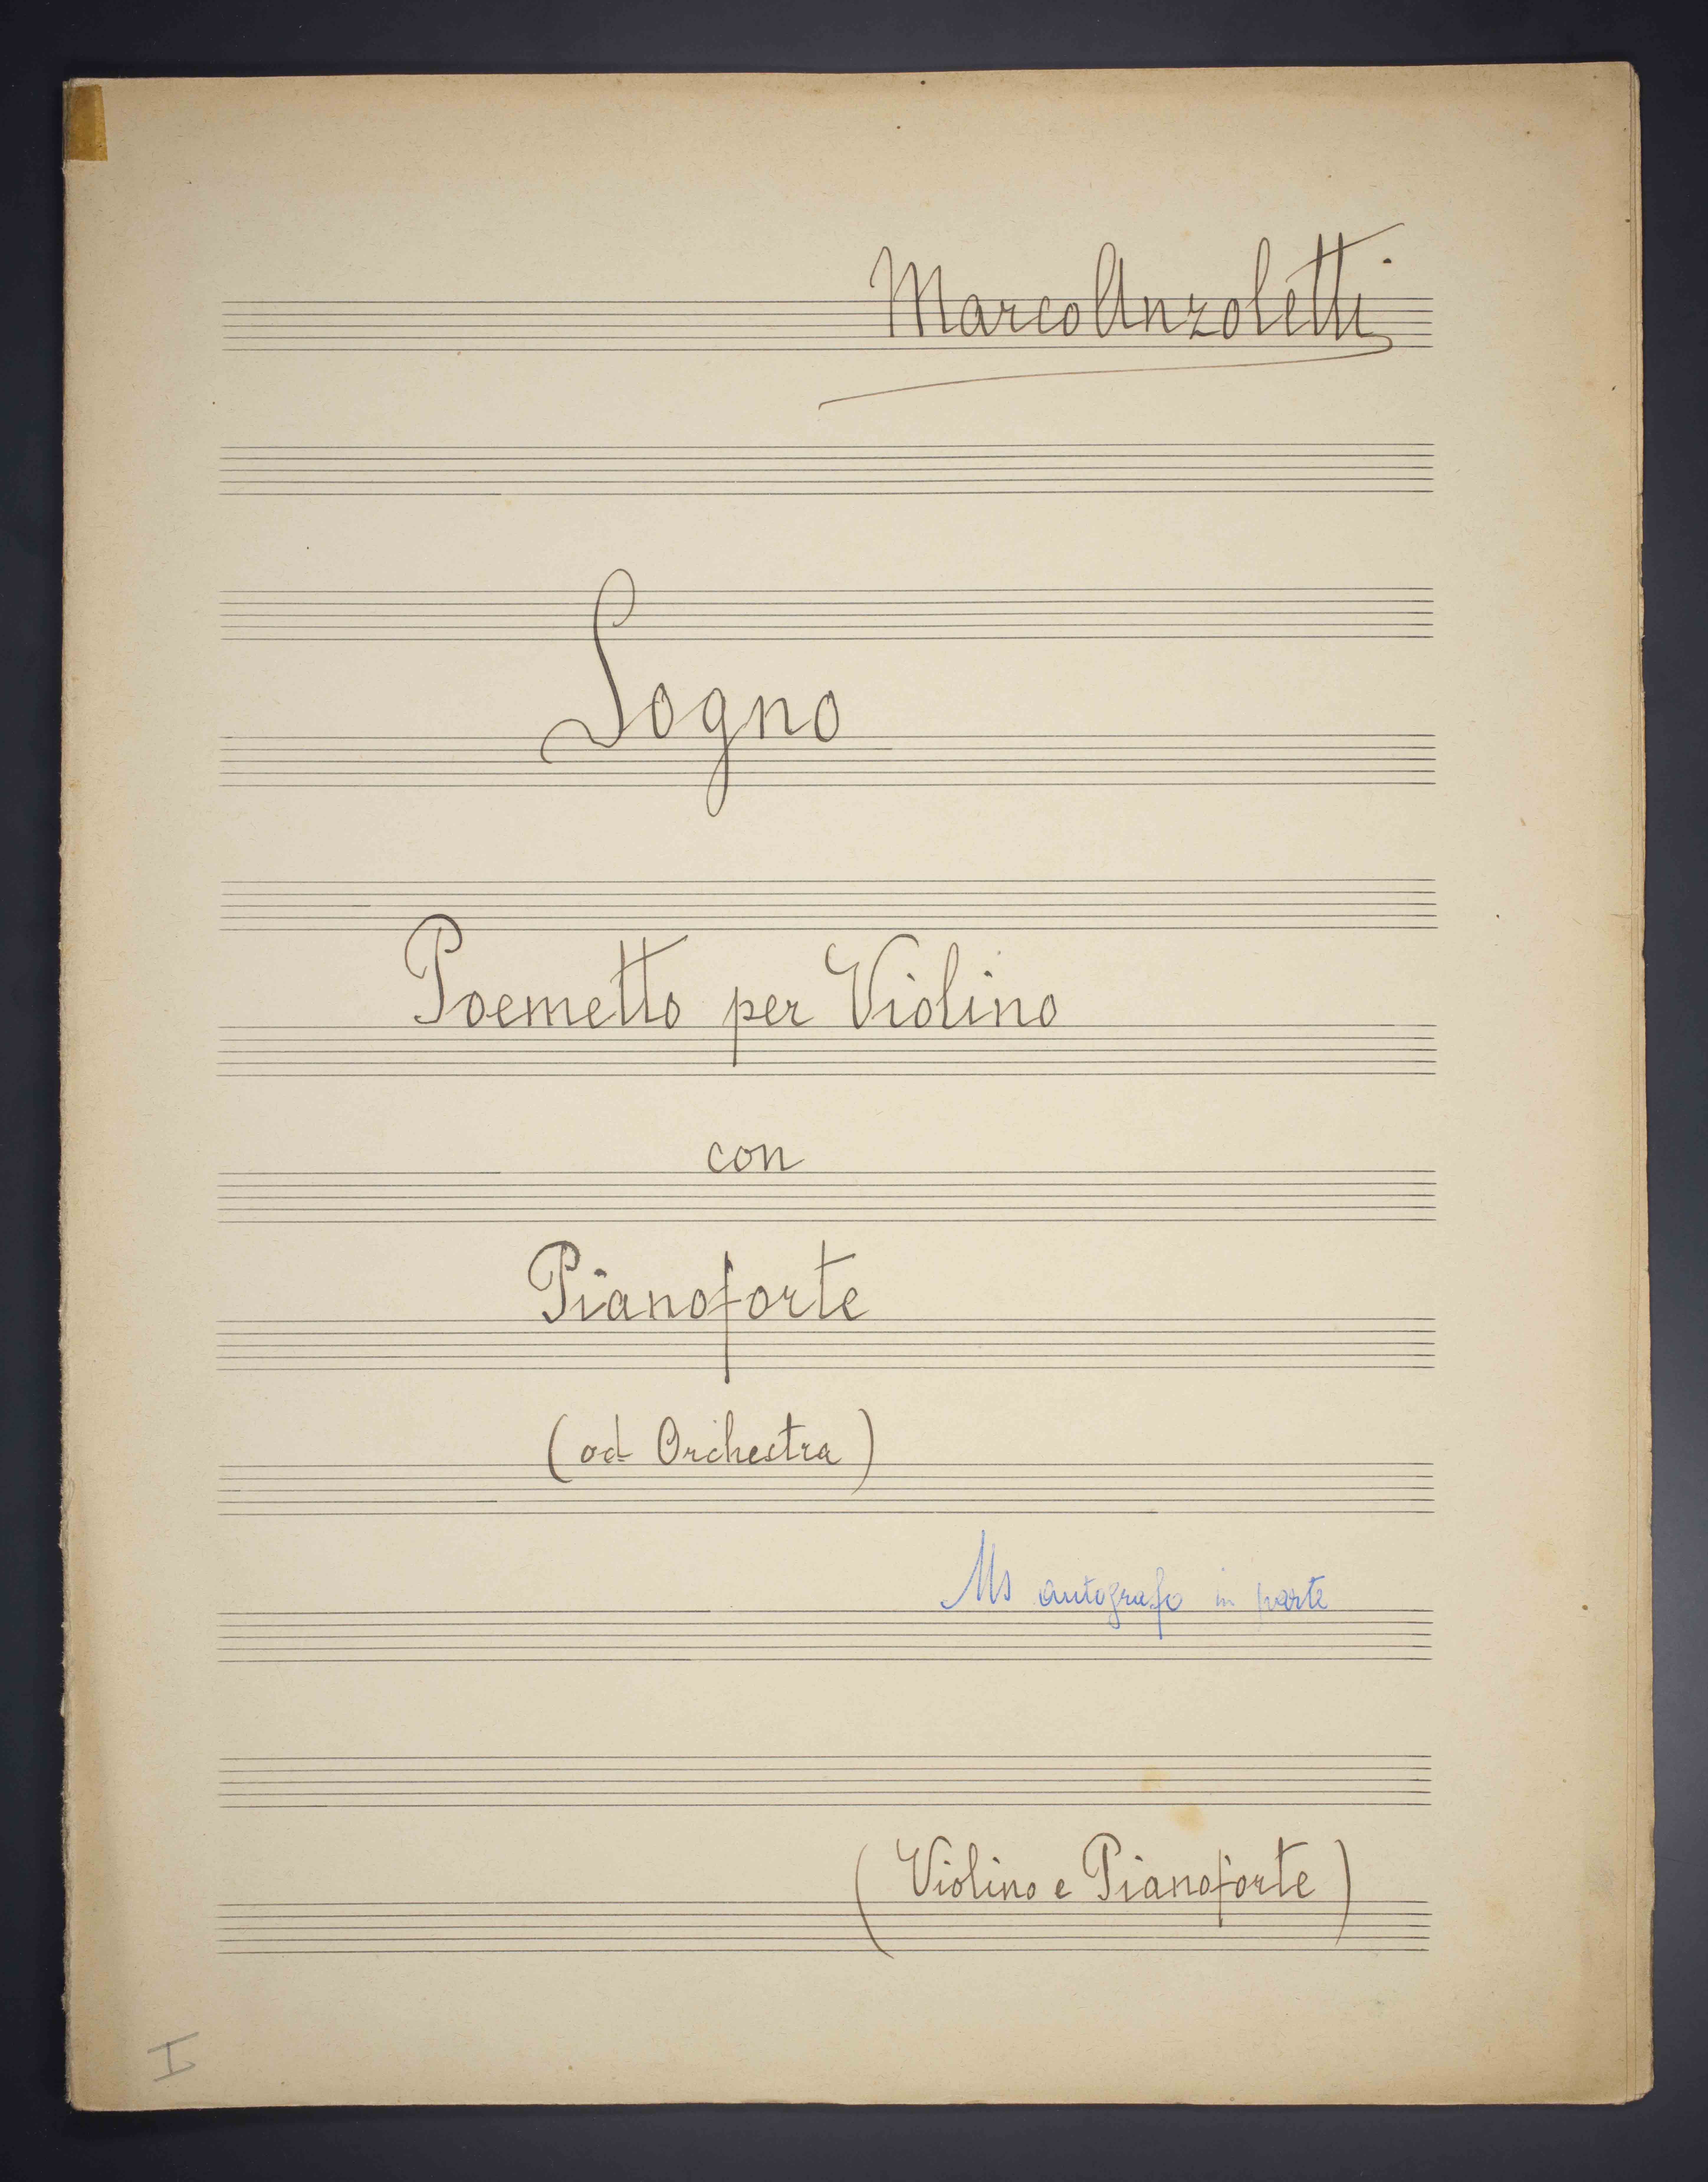 Marco Anzoletti
Sogno
Poemetto per Violino
con
Pianoforte
(od Orchestra)
Ms autografo in parte
(Violino e Pianoforte)
I